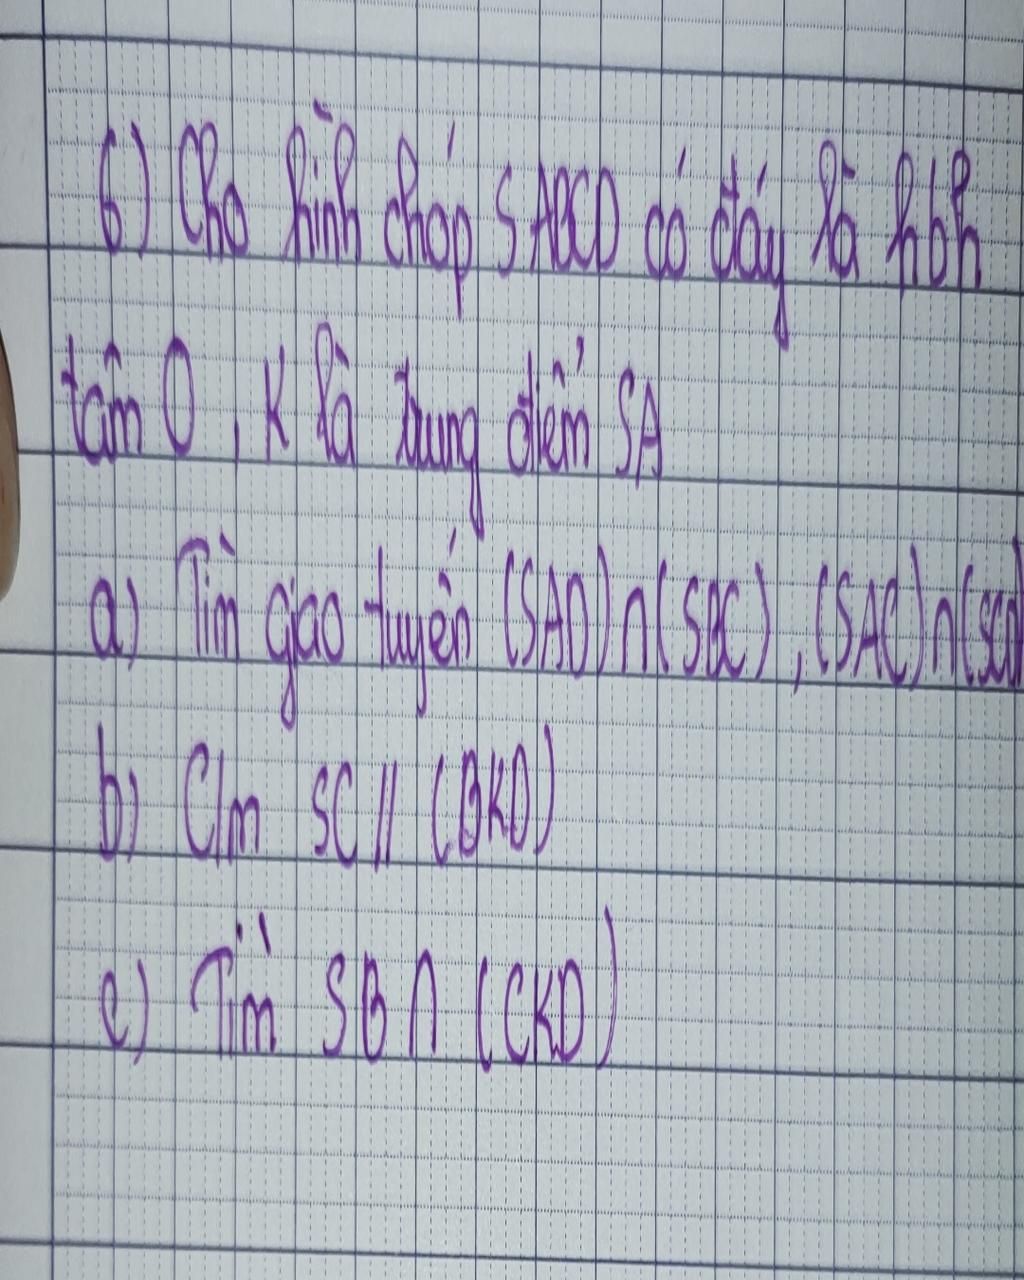 6) Cho hình chóp SABCD có đáy là hbh
tâm O, K là trung điểm SA
a) Tìm giao tuyến (SAD)∩(SBC), (SAC)∩(SCD)
b) C/m SC // (BKD)
c) Tìm SB ∩ (CKD)